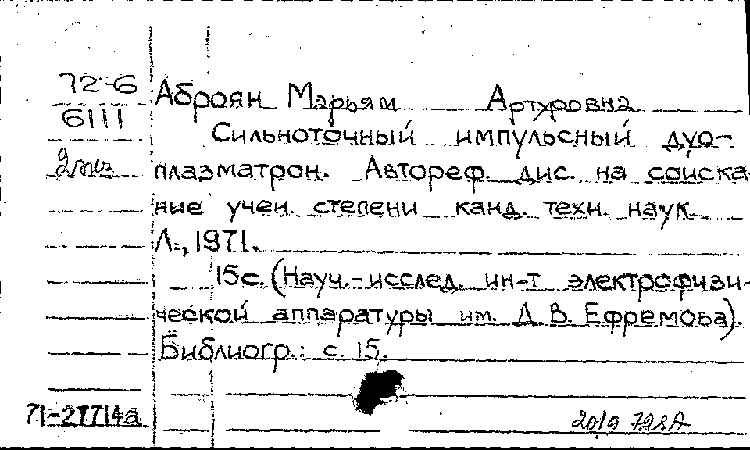 72-6
6111
2 экз
Аброян Марьям Артуровна
Сильноточный импульсный дуо-
плазматрон. Автореф. дис. на соиска-
ние учен. степени канд. техн. наук.
Л., 1971.
15с. (Науч.-исслед. ин-т электрофизи-
ческой аппаратуры им. Д. В. Ефремова).
Библиогр.: с. 15.
71-27714а